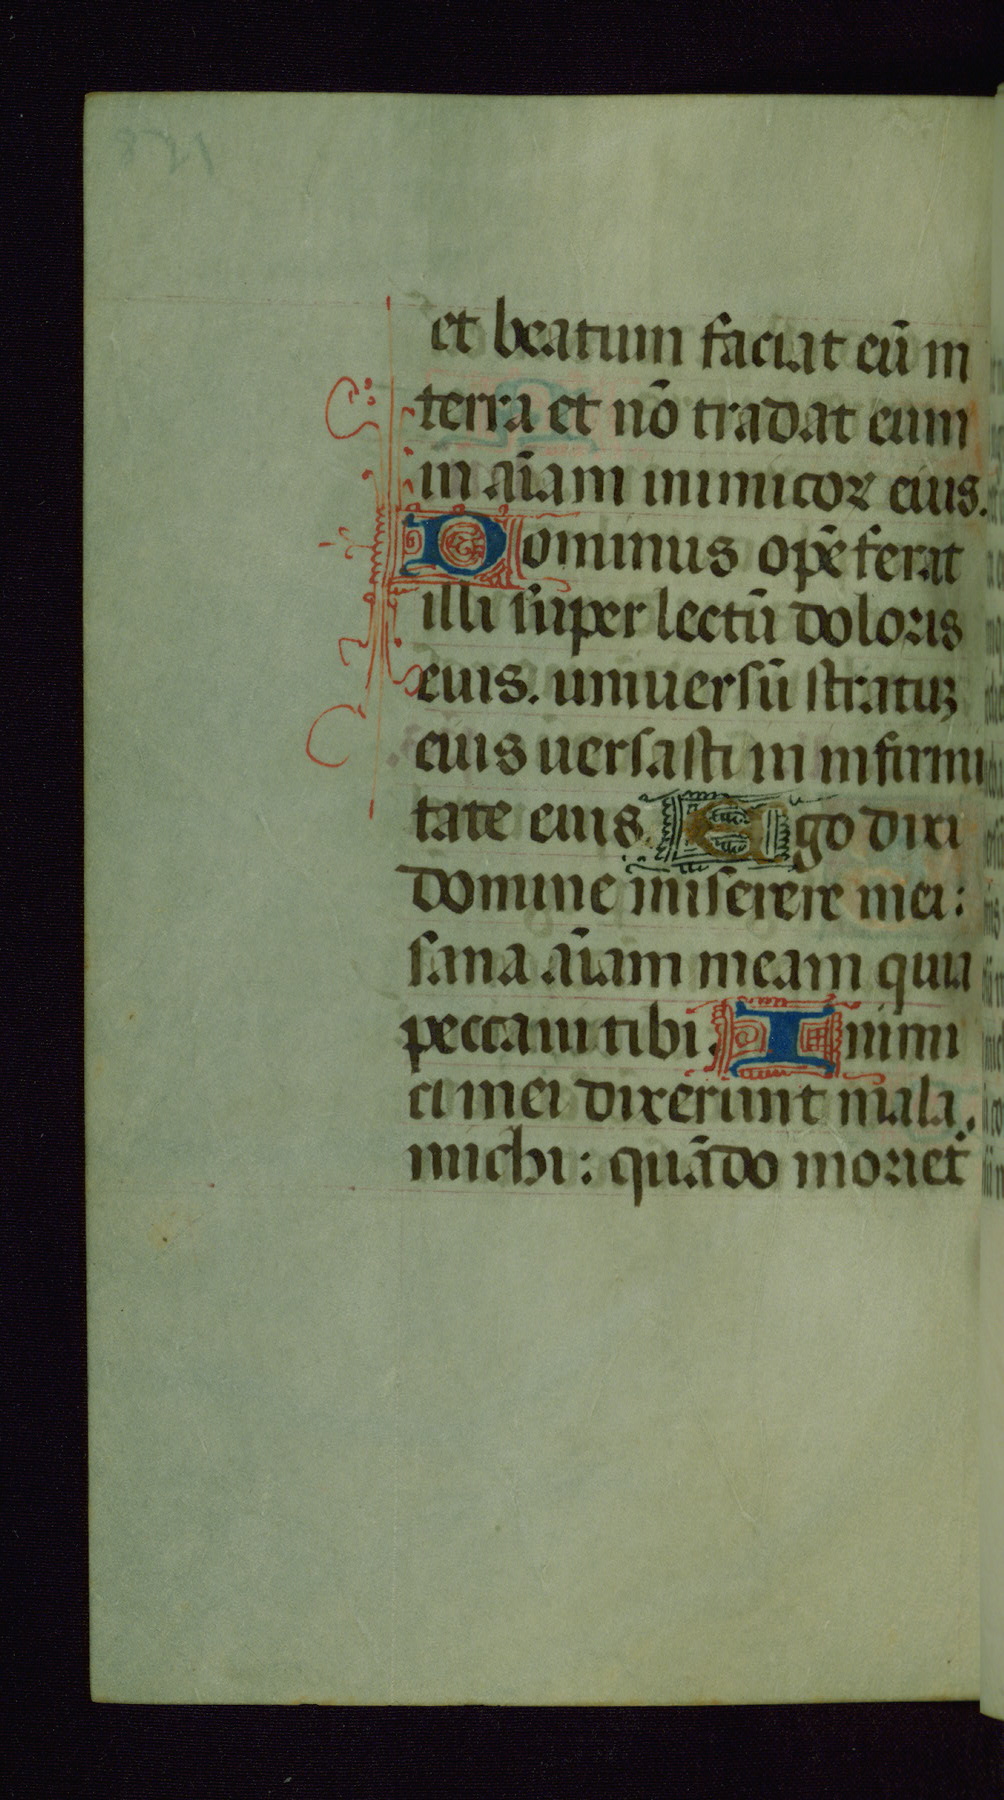 et beatum faciat eū in
terra et nō tradat eum
in aīam inimicoꝝ eius.
Dominus opē ferat
illi super lectū doloris
eius. universū stratuꝫ
eius uersasti in infirmi
tate eius. Ego dixi
domine miserere mei:
sana aīam meam quia
peccaui tibi. Inimi
ci mei dixerunt mala
michi: quādo moriet᷑